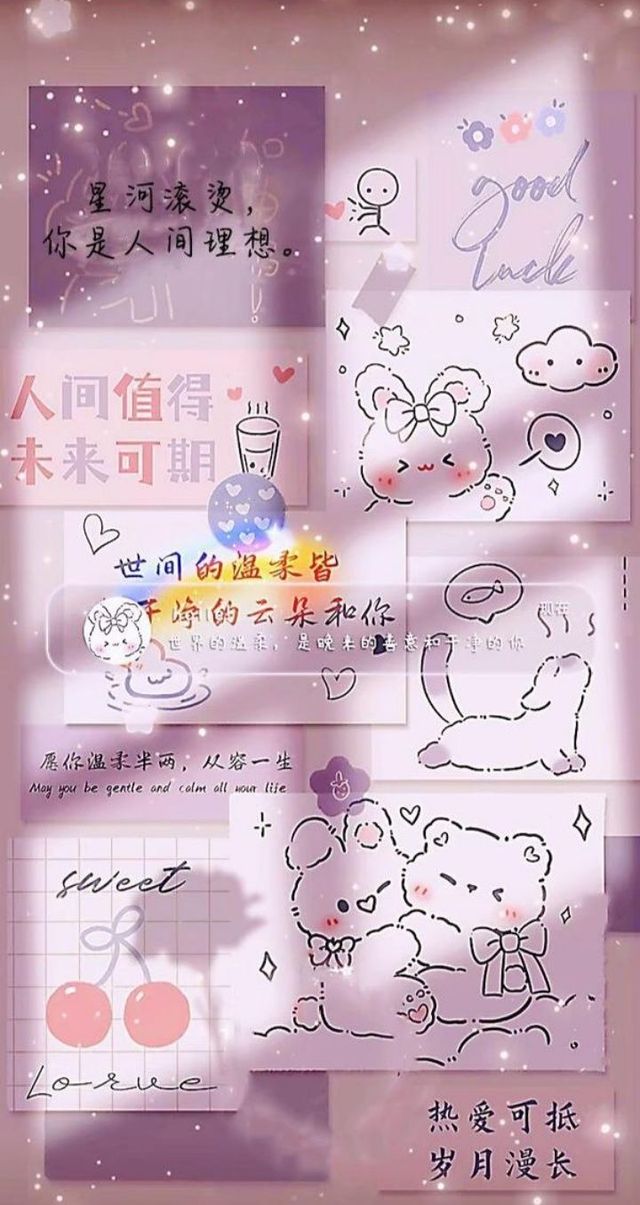 星河滚烫，
你是人间理想。
good
luck
人间值得
未来可期
世间的温柔皆
干净的云朵和你
现在
世界的温柔，是晚来的善意和干净的你
愿你温柔半两，从容一生
May you be gentle and calm all your life
sweet
Lorve
热爱可抵
岁月漫长